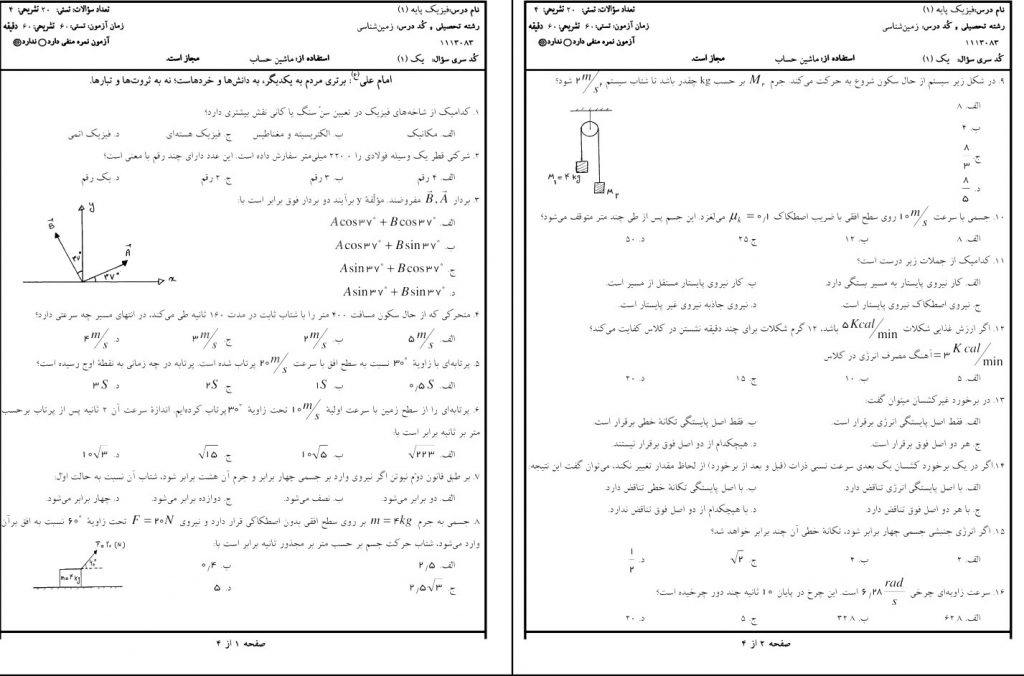 نام درس: فیزیک پایه (۱)
تعداد سؤالات: تستی: ۲۰ تشریحی: ۴
رشته تحصیلی و کُد درس: زمین‌شناسی
زمان آزمون: تستی: ۶۰ تشریحی: ۶۰ دقیقه
۱۱۱۳۰۸۳
آزمون نمره منفی دارد ○ ندارد ◉
کُد سری سؤال: یک (۱)
استفاده از: ماشین حساب
مجاز است.
امام علی(ع): برتری مردم به یکدیگر، به دانش‌ها و خردهاست؛ نه به ثروت‌ها و تبارها.
۱. کدامیک از شاخه‌های فیزیک در تعیین سنّ سنگ یا کانی نقش بیشتری دارد؟
الف. مکانیک ب. الکتریسیته و مغناطیس ج. فیزیک هسته‌ای د. فیزیک اتمی
۲. شرکتی قطر یک وسیله فولادی را ۲۲۰۰ میلی‌متر سفارش داده است. این عدد دارای چند رقم با معنی است؟
الف. ۴ رقم ب. ۳ رقم ج. ۲ رقم د. یک رقم
۳. بردار A, B مفروضند. مؤلّفهٔ y برآیند دو بردار فوق برابر است با:
الف. Acos۳۷° + Bcos۳۷°
ب. Acos۳۷° + Bsin۳۷°
ج. Asin۳۷° + Bcos۳۷°
د. Asin۳۷° + Bsin۳۷°
y
B
A
۳۷°
۳۷°
x
۴. متحرکی که از حال سکون مسافت ۴۰۰ متر را با شتاب ثابت در مدت ۱۶۰ ثانیه طی می‌کند، در انتهای مسیر چه سرعتی دارد؟
الف. ۵ m/s ب. ۲ m/s ج. ۳ m/s د. ۴ m/s
۵. پرتابه‌ای با زاویهٔ ۳۰° نسبت به سطح افق با سرعت ۲۰ m/s پرتاب شده است. پرتابه در چه زمانی به نقطهٔ اوج رسیده است؟
الف. ۰/۵ S ب. ۱S ج. ۲S د. ۳ S
۶. پرتابه‌ای را از سطح زمین با سرعت اولیهٔ ۱۰ m/s تحت زاویهٔ ۳۰° پرتاب کرده‌ایم. اندازهٔ سرعت آن ۲ ثانیه پس از پرتاب برحسب
متر بر ثانیه برابر است با:
الف. √۲۲۳ ب. ۱۰√۵ ج. √۱۵ د. ۱۰√۳
۷. بر طبق قانون دوّم نیوتن اگر نیروی وارد بر جسمی چهار برابر و جرم آن هشت برابر شود، شتاب آن نسبت به حالت اوّل:
الف. دو برابر می‌شود. ب. نصف می‌شود. ج. دوازده برابر می‌شود. د. چهار برابر می‌شود.
۸. جسمی به جرم m = ۴kg بر روی سطح افقی بدون اصطکاکی قرار دارد و نیروی F = ۲۰N تحت زاویهٔ ۶۰° نسبت به افق برآن
وارد می‌شود، شتاب حرکت جسم بر حسب متر بر مجذور ثانیه برابر است با:
الف. ۲/۵ ب. ۰/۴
ج. ۲/۵√۳ د. ۵
F=۲۰ (N)
۶۰°
m=۴ kg
صفحه ۱ از ۴
نام درس: فیزیک پایه (۱)
تعداد سؤالات: تستی: ۲۰ تشریحی: ۴
رشته تحصیلی و کُد درس: زمین‌شناسی
زمان آزمون: تستی: ۶۰ تشریحی: ۶۰ دقیقه
۱۱۱۳۰۸۳
آزمون نمره منفی دارد ○ ندارد ◉
کُد سری سؤال: یک (۱)
استفاده از: ماشین حساب
مجاز است.
۹. در شکل زیر سیستم از حال سکون شروع به حرکت می‌کند. جرم M۲ بر حسب kg چقدر باشد تا شتاب سیستم ۲ m/s² شود؟
الف. ۸
ب. ۴
ج. ۸/۳
د. ۸/۵
M۱ = ۴ kg
M۲
۱۰. جسمی با سرعت ۱۰ m/s روی سطح افقی با ضریب اصطکاک μk = ۰/۱ می‌لغزد. این جسم پس از طی چند متر متوقف می‌شود؟
الف. ۸ ب. ۱۲ ج. ۲۵ د. ۵۰
۱۱. کدامیک از جملات زیر درست است؟
الف. کار نیروی پایستار به مسیر بستگی دارد. ب. کار نیروی پایستار مستقل از مسیر است.
ج. نیروی اصطکاک نیروی پایستار است. د. نیروی جاذبه نیروی غیر پایستار است.
۱۲. اگر ارزش غذایی شکلات ۵ Kcal/min باشد، ۱۲ گرم شکلات برای چند دقیقه نشستن در کلاس کفایت می‌کند؟
۳ K cal/min = آهنگ مصرف انرژی در کلاس
الف. ۵ ب. ۱۰ ج. ۱۵ د. ۲۰
۱۳. در برخورد غیرکشسان میتوان گفت:
الف. فقط اصل پایستگی انرژی برقرار است. ب. فقط اصل پایستگی تکانهٔ خطی برقرار است.
ج. هر دو اصل فوق برقرار است. د. هیچکدام از دو اصل فوق برقرار نیستند.
۱۴. اگر در یک برخورد کشسان یک بعدی سرعت نسبی ذرات (قبل و بعد از برخورد) از لحاظ مقدار تغییر نکند، می‌توان گفت این نتیجه:
الف. با اصل پایستگی انرژی تناقض دارد. ب. با اصل پایستگی تکانهٔ خطی تناقض دارد.
ج. با هر دو اصل فوق تناقض دارد. د. با هیچکدام از دو اصل فوق تناقض ندارد.
۱۵. اگر انرژی جنبشی جسمی چهار برابر شود، تکانهٔ خطی آن چند برابر خواهد شد؟
الف. ۲ ب. ۴ ج. √۲ د. ۱/۲
۱۶. سرعت زاویه‌ای چرخی ۶/۲۸ rad/s است. این چرخ در پایان ۱۰ ثانیه چند دور چرخیده است؟
الف. ۶۲۸ ب. ۳۲۸ ج. ۵ د. ۲۰
صفحه ۲ از ۴